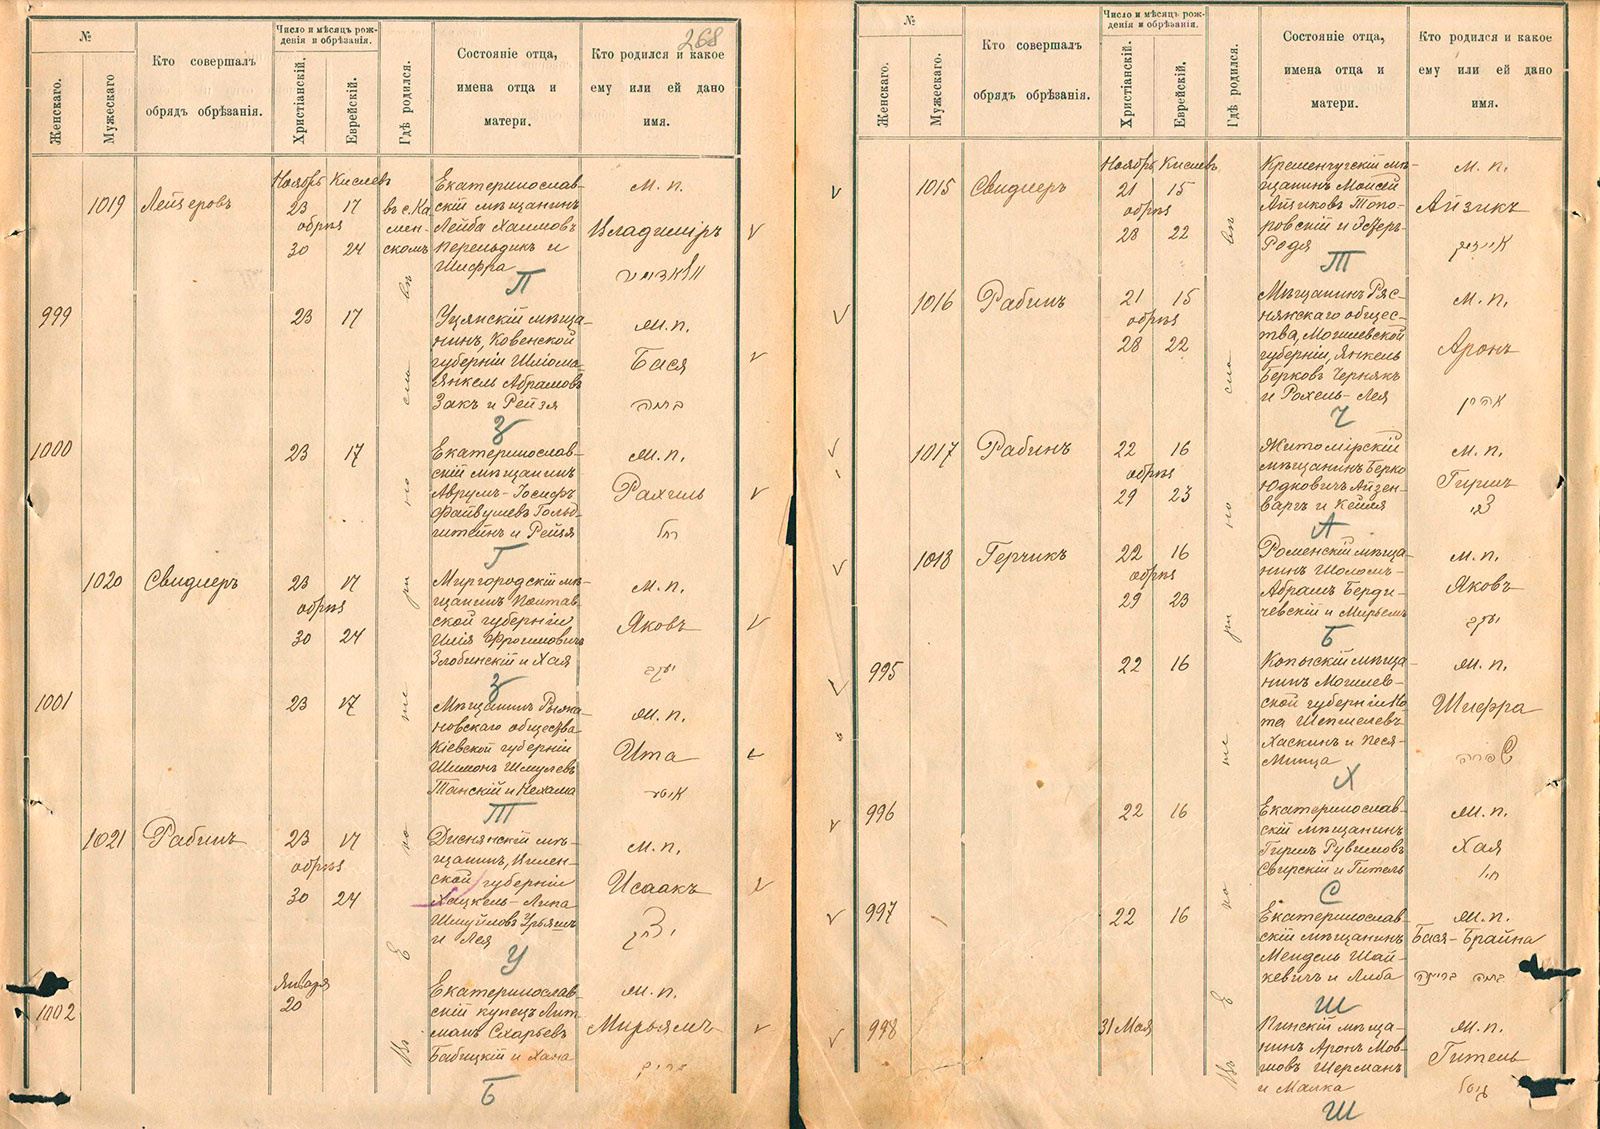 268
№
Женскаго.
Мужескаго
Кто совершалъ
обрядъ обрѣзанія.
Число и мѣсяцъ рож-
денія и обрѣзанія.
Христіанскій.
Еврейскій.
Гдѣ родился.
Состояніе отца,
имена отца и
матери.
Кто родился и какое
ему или ей дано
имя.
Въ Екатеринославѣ
1019
Лейзеровъ
Ноябрь Кислевъ
23 17
обрѣз
30 24
въ с. Ка
мен-
скомъ
Екатеринослав-
скій мѣщанинъ
Лейба Хаимовъ
Перельдикъ и
Шифра
П
м. п.
Владиміръ
999
23 17
Уцянскій мѣща-
нинъ, Ковенской
губерніи Шліома
Янкель Абрамовъ
Закъ и Рейзя
З
ж. п.
Бася
באסיה
1000
23 17
Екатеринослав-
скій мѣщанинъ
Аврумъ-Іосифъ
Файвушевъ Гольд-
штейнъ и Рейзя
Г
ж. п.
Рахиль
רחל
1020
Свидлеръ
23 17
обрѣз
30 24
Миргородскій мѣ-
щанинъ Полтав-
ской губерніи
Илія Фроимовичъ
Злобинскій и Хая
З
м. п.
Яковъ
יעקב
1001
23 17
Мѣщанинъ
новскаго общества
Кіевской губерніи
Шимонъ Шмулевъ
Танскій и Нехама
Т
ж. п.
Ита
איטע
1021
Рабинъ
23 17
обрѣз
30 24
Диснянскій мѣ-
щанинъ, Вилен-
ской губерніи
Хацкель-Липа
Шмуйловъ
и Лея
У
м. п.
Исаакъ
יצחק
1002
Января
20
Екатеринослав-
скій купецъ Лит-
манъ Схарьевъ
Бабицкій и Хана
Б
ж. п.
Мирьямъ
מרים
№
Женскаго.
Мужескаго.
Кто совершалъ
обрядъ обрѣзанія.
Число и мѣсяцъ рож-
денія и обрѣзанія.
Христіанскій.
Еврейскій.
Гдѣ родился.
Состояніе отца,
имена отца и
матери.
Кто родился и какое
ему или ей дано
имя.
Въ Екатеринославѣ
1015
Свидлеръ
Ноябрь Кислевъ
21 15
обрѣз
28 22
Кременчугскій мѣ-
щанинъ Моисей
Айзиковъ Топо-
ровскій и Эсѳеръ-
Родя
Т
м. п.
Айзикъ
אייזיק
1016
Рабинъ
21 15
обрѣз
28 22
Мѣщанинъ Ряс-
нянскаго общес-
тва, Могилевской
губерніи, Янкель
Берковъ Чернякъ
и Рохель-Лея
Ч
м. п.
Аронъ
אהרן
1017
Рабинъ
22 16
обрѣз
29 23
Житомірскій
мѣщанинъ Берко
Юдковичъ Айзен-
варгъ и Кейля
А
м. п.
Гиршъ
צבי
1018
Герчикъ
22 16
обрѣз
29 23
Роменскій мѣща-
нинъ Шоломъ-
Абрамъ Берди-
чевскій и Мирьемъ
Б
м. п.
Яковъ
יעקב
995
22 16
Копысскій мѣща-
нинъ Могилев-
ской губерніи Мо
та Шепшелевъ
Хаскинъ и Песя-
Минца
Х
ж. п.
Шифра
שפרה
996
22 16
Екатеринослав-
скій мѣщанинъ
Гиршъ Рувимовъ
Свирскій и Гитель
С
ж. п.
Хая
חיה
997
22 16
Екатеринослав-
скій мѣщанинъ
Мендель Шай-
кевичъ и Либа
Ш
ж. п.
Бася-Брайна
באסיה בריינה
998
31 Мая
Пинскій мѣща-
нинъ Аронъ Мов-
шовъ Шерманъ
и Малка
Ш
ж. п.
Гитель
גיטל